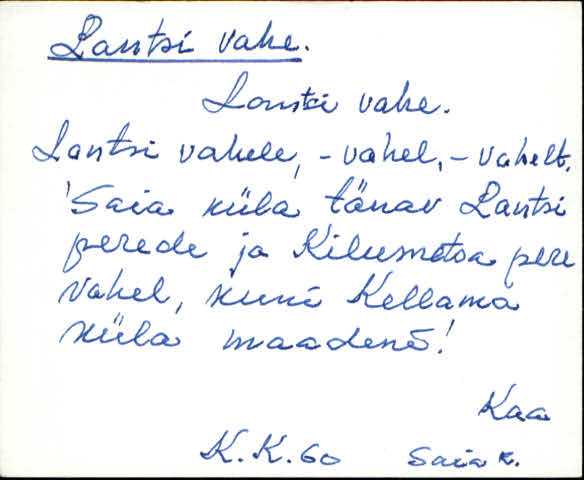 Lantsi vahe.
Lantsi vahe.
Lantsi vahele, -vahel, -vahelt.
'Saia küla tänav Lantsi
perede ja Kilumetsa pere
vahel, kuni Kellama
küla maadeni!
Kaa
K.K.60 Saia k.